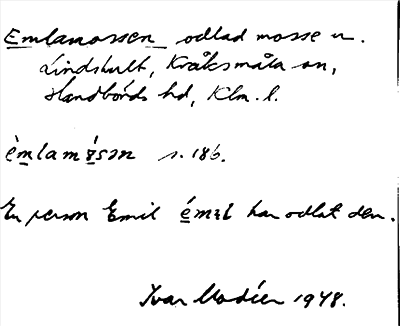 Emlamossen odlad mosse n.
Lindshult, Kråksmåla sn,
Handbörds hd, Klm. l.
èmlamåsən s. 186.
En person Emil éməl har odlat den.
Ivar Modéer 1948.